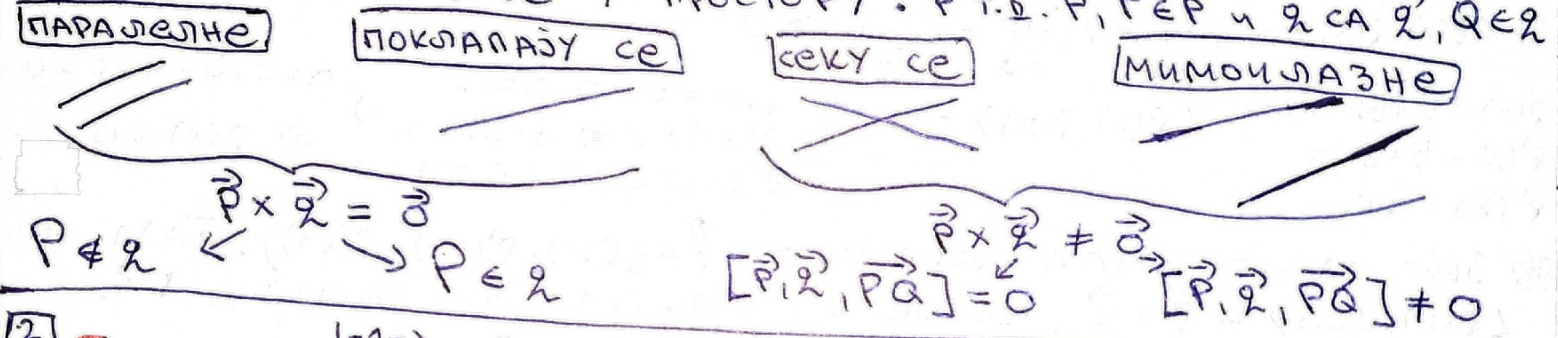 ПРОСТОРУ. P т.д. P, P∈P и q СА q, Q∈q
ПАРАЛЕЛНЕ ПОКЛАПАЈУ СЕ СЕКУ СЕ МИМОИЛАЗНЕ
p⃗ × q⃗ = 0⃗ p⃗ × q⃗ ≠ 0⃗
P∉q P∈q [p⃗, q⃗, PQ⃗] = 0 [p⃗, q⃗, PQ⃗] ≠ 0
2